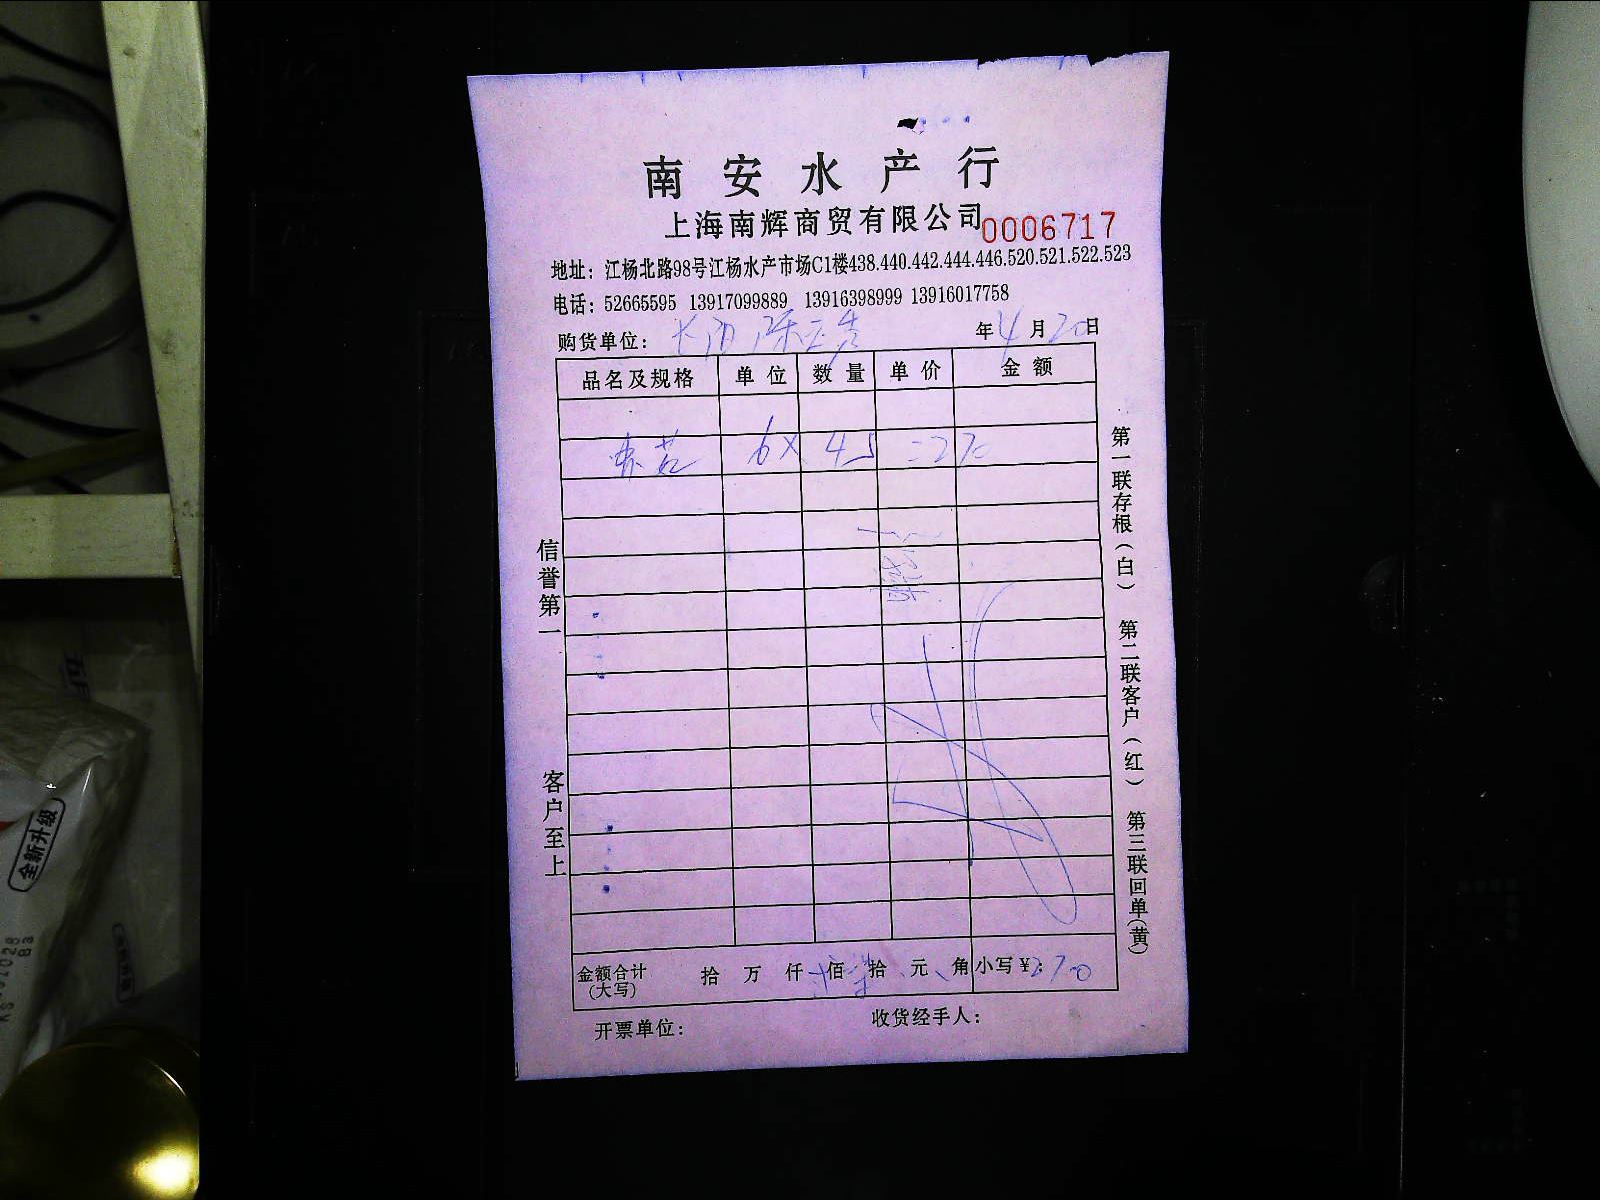 南安水产行
上海南辉商贸有限公司 0006717
地址：江杨北路98号江杨水产市场C1楼438.440.442.444.446.520.521.522.523
电话：52665595 13917099889 13916398999 13916017758
购货单位： 年4月20日
品名及规格 单位 数量 单价 金额
6× 45 =270
信誉第一
客户至上
第一联存根（白） 第二联客户（红） 第三联回单（黄）
金额合计（大写） 拾 万 仟 佰 拾 元 角 小写¥：270
开票单位： 收货经手人：
全新升级